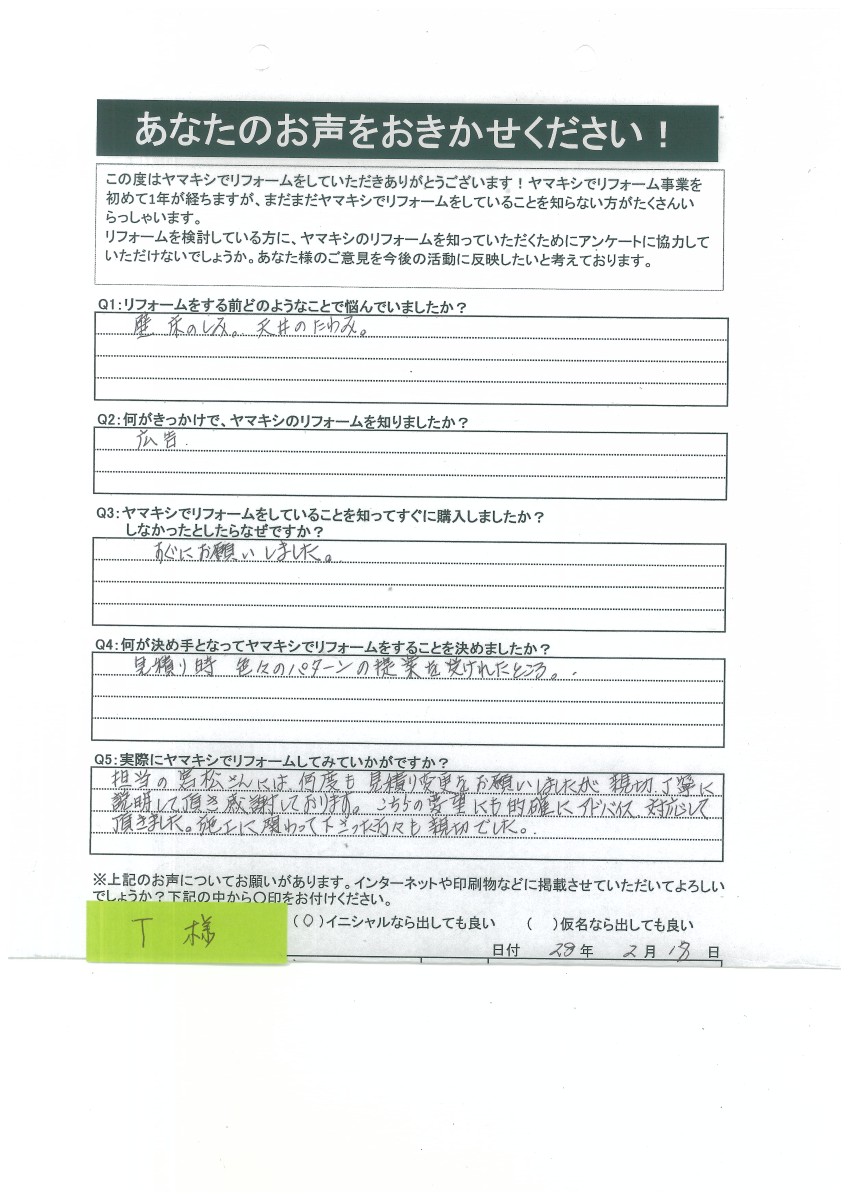 あなたのお声をおきかせください！
この度はヤマキシでリフォームをしていただきありがとうございます！ヤマキシでリフォーム事業を
初めて1年が経ちますが、まだまだヤマキシでリフォームをしていることを知らない方がたくさんい
らっしゃいます。
リフォームを検討している方に、ヤマキシのリフォームを知っていただくためにアンケートに協力して
いただけないでしょうか。あなた様のご意見を今後の活動に反映したいと考えております。
Q1：リフォームをする前どのようなことで悩んでいましたか？
壁 床のしみ。天井のたわみ。
Q2：何がきっかけで、ヤマキシのリフォームを知りましたか？
広告.
Q3：ヤマキシでリフォームをしていることを知ってすぐに購入しましたか？
しなかったとしたらなぜですか？
すぐにお願いしました。
Q4：何が決め手となってヤマキシでリフォームをすることを決めましたか？
見積り時 色々のパターンの提案を受けれたところ。
Q5：実際にヤマキシでリフォームしてみていかがですか？
担当の宮松さんには、何度も見積り変更をお願いしましたが親切、丁寧に
説明して頂き感謝しております。こちらの要望にも的確にアドバイス、対応して
頂きました。施工に関わって下さった方々も親切でした。
※上記のお声についてお願いがあります。インターネットや印刷物などに掲載させていただいてよろしい
でしょうか？下記の中から〇印をお付けください。
T 様 (〇)イニシャルなら出しても良い ( )仮名なら出しても良い
日付 28年 2月 日